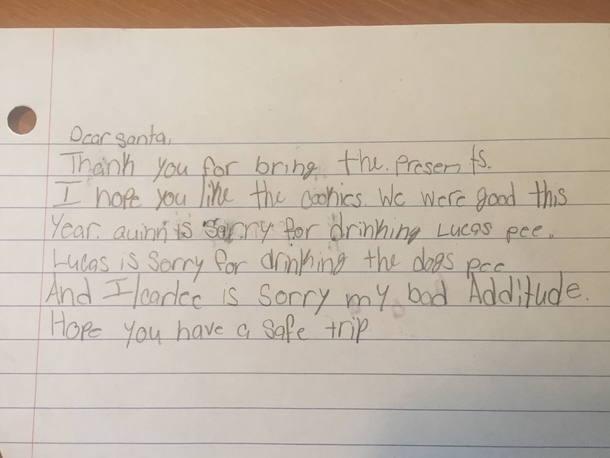 Dear santa,
Thank you for bring the. presents.
I hope you like the cookies. We were good this
Year. Quinn is sarry for drinking Lucas pee.
Lucas is sorry for drinking the dogs pee
And I/carlee is sorry my bad Additude.
Hope you have a safe trip